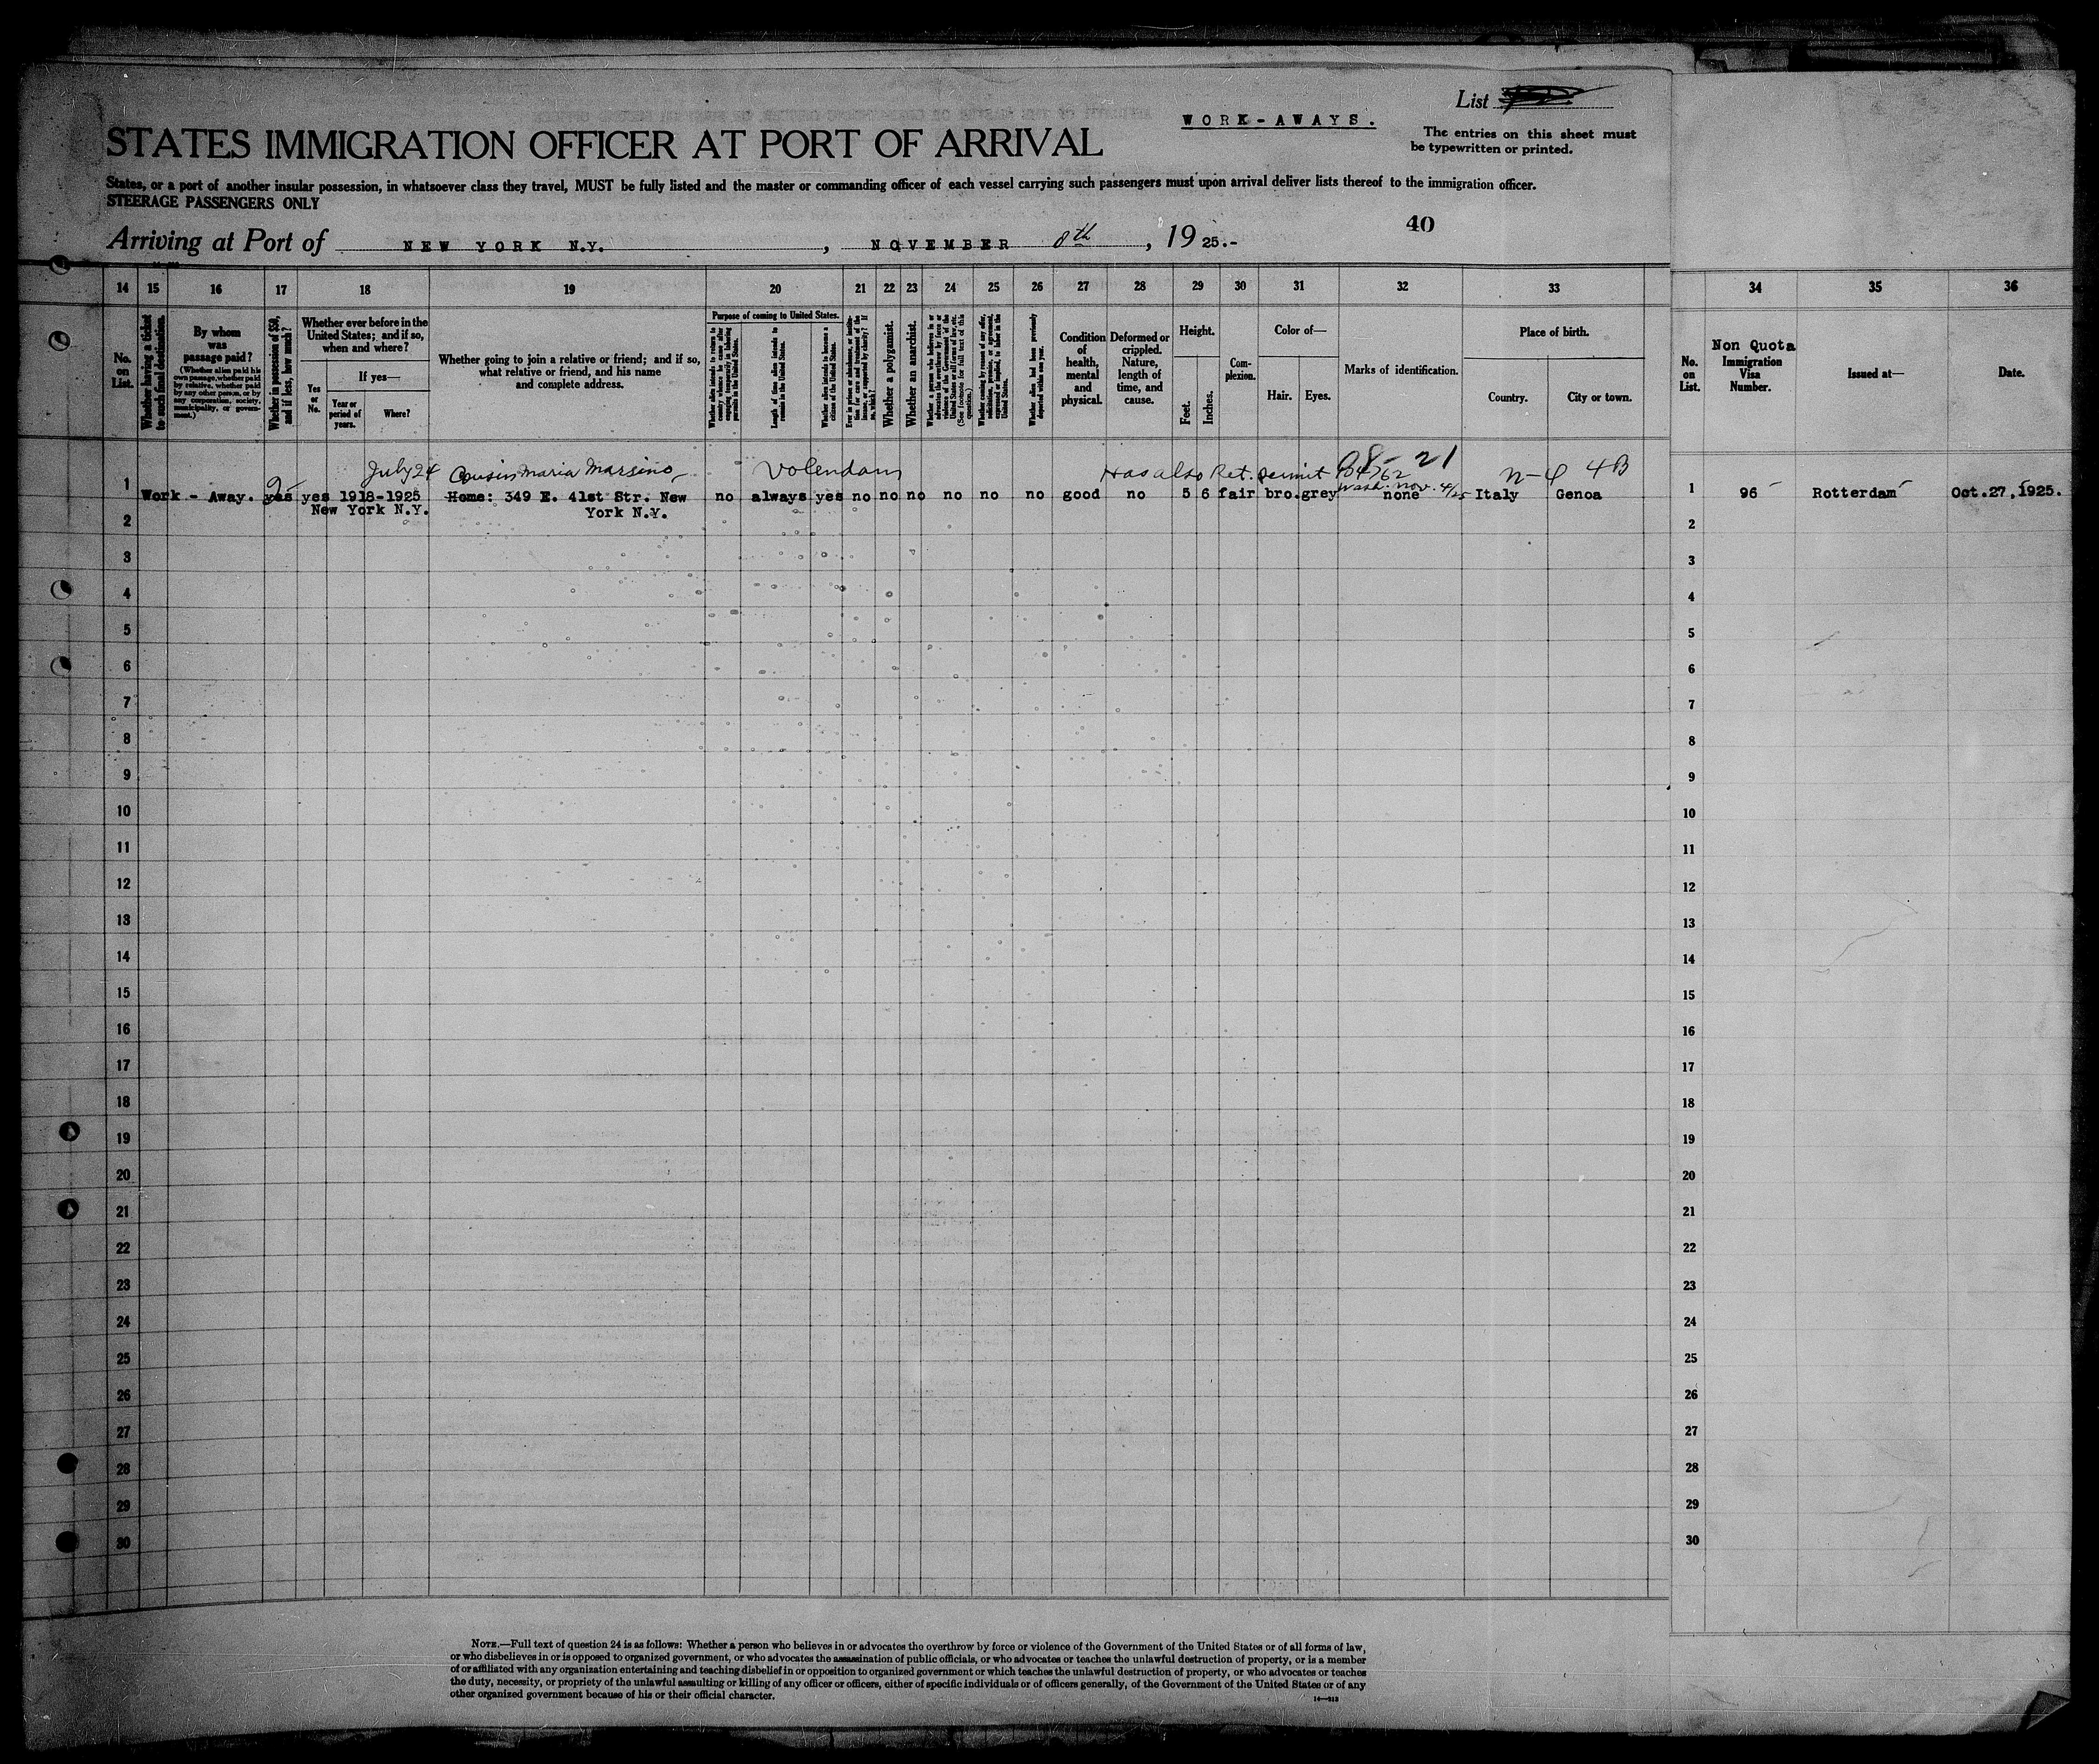 List
WORK-AWAYS.
The entries on this sheet must
be typewritten or printed.
STATES IMMIGRATION OFFICER AT PORT OF ARRIVAL
States, or a port of another insular possession, in whatsoever class they travel, MUST be fully listed and the master or commanding officer of each vessel carrying such passengers must upon arrival deliver lists thereof to the immigration officer.
STEERAGE PASSENGERS ONLY
40
Arriving at Port of NEW YORK N.Y. , NOVEMBER 8th , 19 25.-
14 15 16 17 18 19 20 21 22 23 24 25 26 27 28 29 30 31 32 33 34 35 36
No. on List.
Whether having a ticket to such final destination.
By whom was passage paid?
(Whether alien paid his own passage, whether paid by relative, whether paid by any other person, or by any corporation, society, municipality, or government.)
Whether in possession of $50, and if less, how much?
Whether ever before in the United States; and if so, when and where?
Yes or No.
If yes—
Year or period of years.
Where?
Whether going to join a relative or friend; and if so, what relative or friend, and his name and complete address.
Purpose of coming to United States.
Whether alien intends to return to country whence he came after engaging temporarily in laboring pursuits in the United States.
Length of time alien intends to remain in the United States.
Whether alien intends to become a citizen of the United States.
Whether a polygamist.
Whether an anarchist.
Whether alien had been previously deported within one year.
Condition of health, mental and physical.
Deformed or crippled. Nature, length of time, and cause.
Height.
Feet.
Inches.
Complexion.
Color of—
Hair.
Eyes.
Marks of identification.
Place of birth.
Country.
City or town.
No. on List.
Non Quota
Immigration Visa Number.
Issued at—
Date.
July 24 Cousin Maria Marsino Volendam Has also Ret. permit 98-21 n-4 4B
Wash. Nov. 4/25
1 Work - Away. yes yes 1918-1925 Home: 349 E. 41st Str. New no always yes no no no no no no good no 5 6 fair bro. grey none Italy Genoa 1 96 Rotterdam Oct.27,1925.
New York N.Y. York N.Y.
2 2
3 3
4 4
5 5
6 6
7 7
8 8
9 9
10 10
11 11
12 12
13 13
14 14
15 15
16 16
17 17
18 18
19 19
20 20
21 21
22 22
23 23
24 24
25 25
26 26
27 27
28 28
29 29
30 30
NOTE.—Full text of question 24 is as follows: Whether a person who believes in or advocates the overthrow by force or violence of the Government of the United States or of all forms of law,
or who disbelieves in or is opposed to organized government, or who advocates the assassination of public officials, or who advocates or teaches the unlawful destruction of property, or is a member
of or affiliated with any organization entertaining and teaching disbelief in or opposition to organized government or which teaches the unlawful destruction of property, or who advocates or teaches
the duty, necessity, or propriety of the unlawful assaulting or killing of any officer or officers, either of specific individuals or of officers generally, of the Government of the United States or of any
other organized government because of his or their official character.
14—913